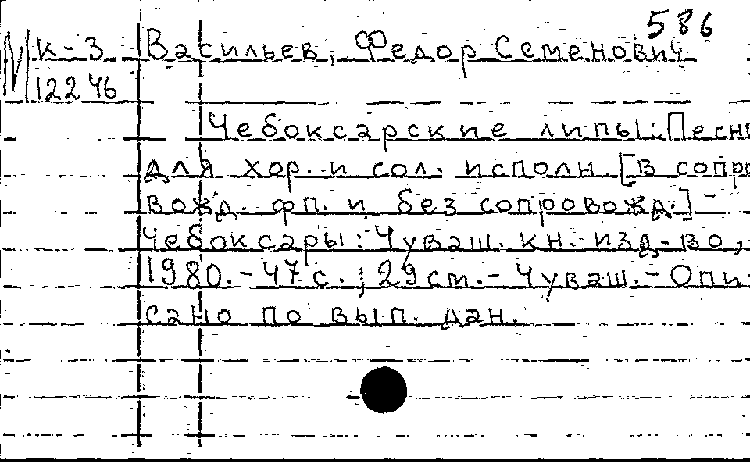 586
К-3 Васильев, Федор Семенович
12246
Чебоксарские липы: Песни
для хор. и сол. исполн. [В сопро
вожд. фп. и без сопровожд.] -
Чебоксары: Чуваш. кн. изд-во,
1980. - 47 с.; 29 см. - Чуваш. - Опи
сано по вып. дан.